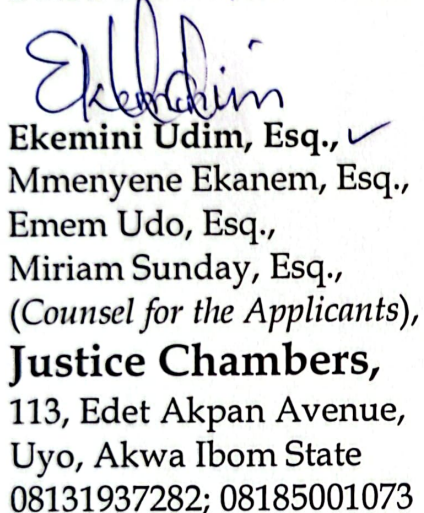 Ekemini Udim, Esq., ✓
Mmenyene Ekanem, Esq.,
Emem Udo, Esq.,
Miriam Sunday, Esq.,
(Counsel for the Applicants),
Justice Chambers,
113, Edet Akpan Avenue,
Uyo, Akwa Ibom State
08131937282; 08185001073